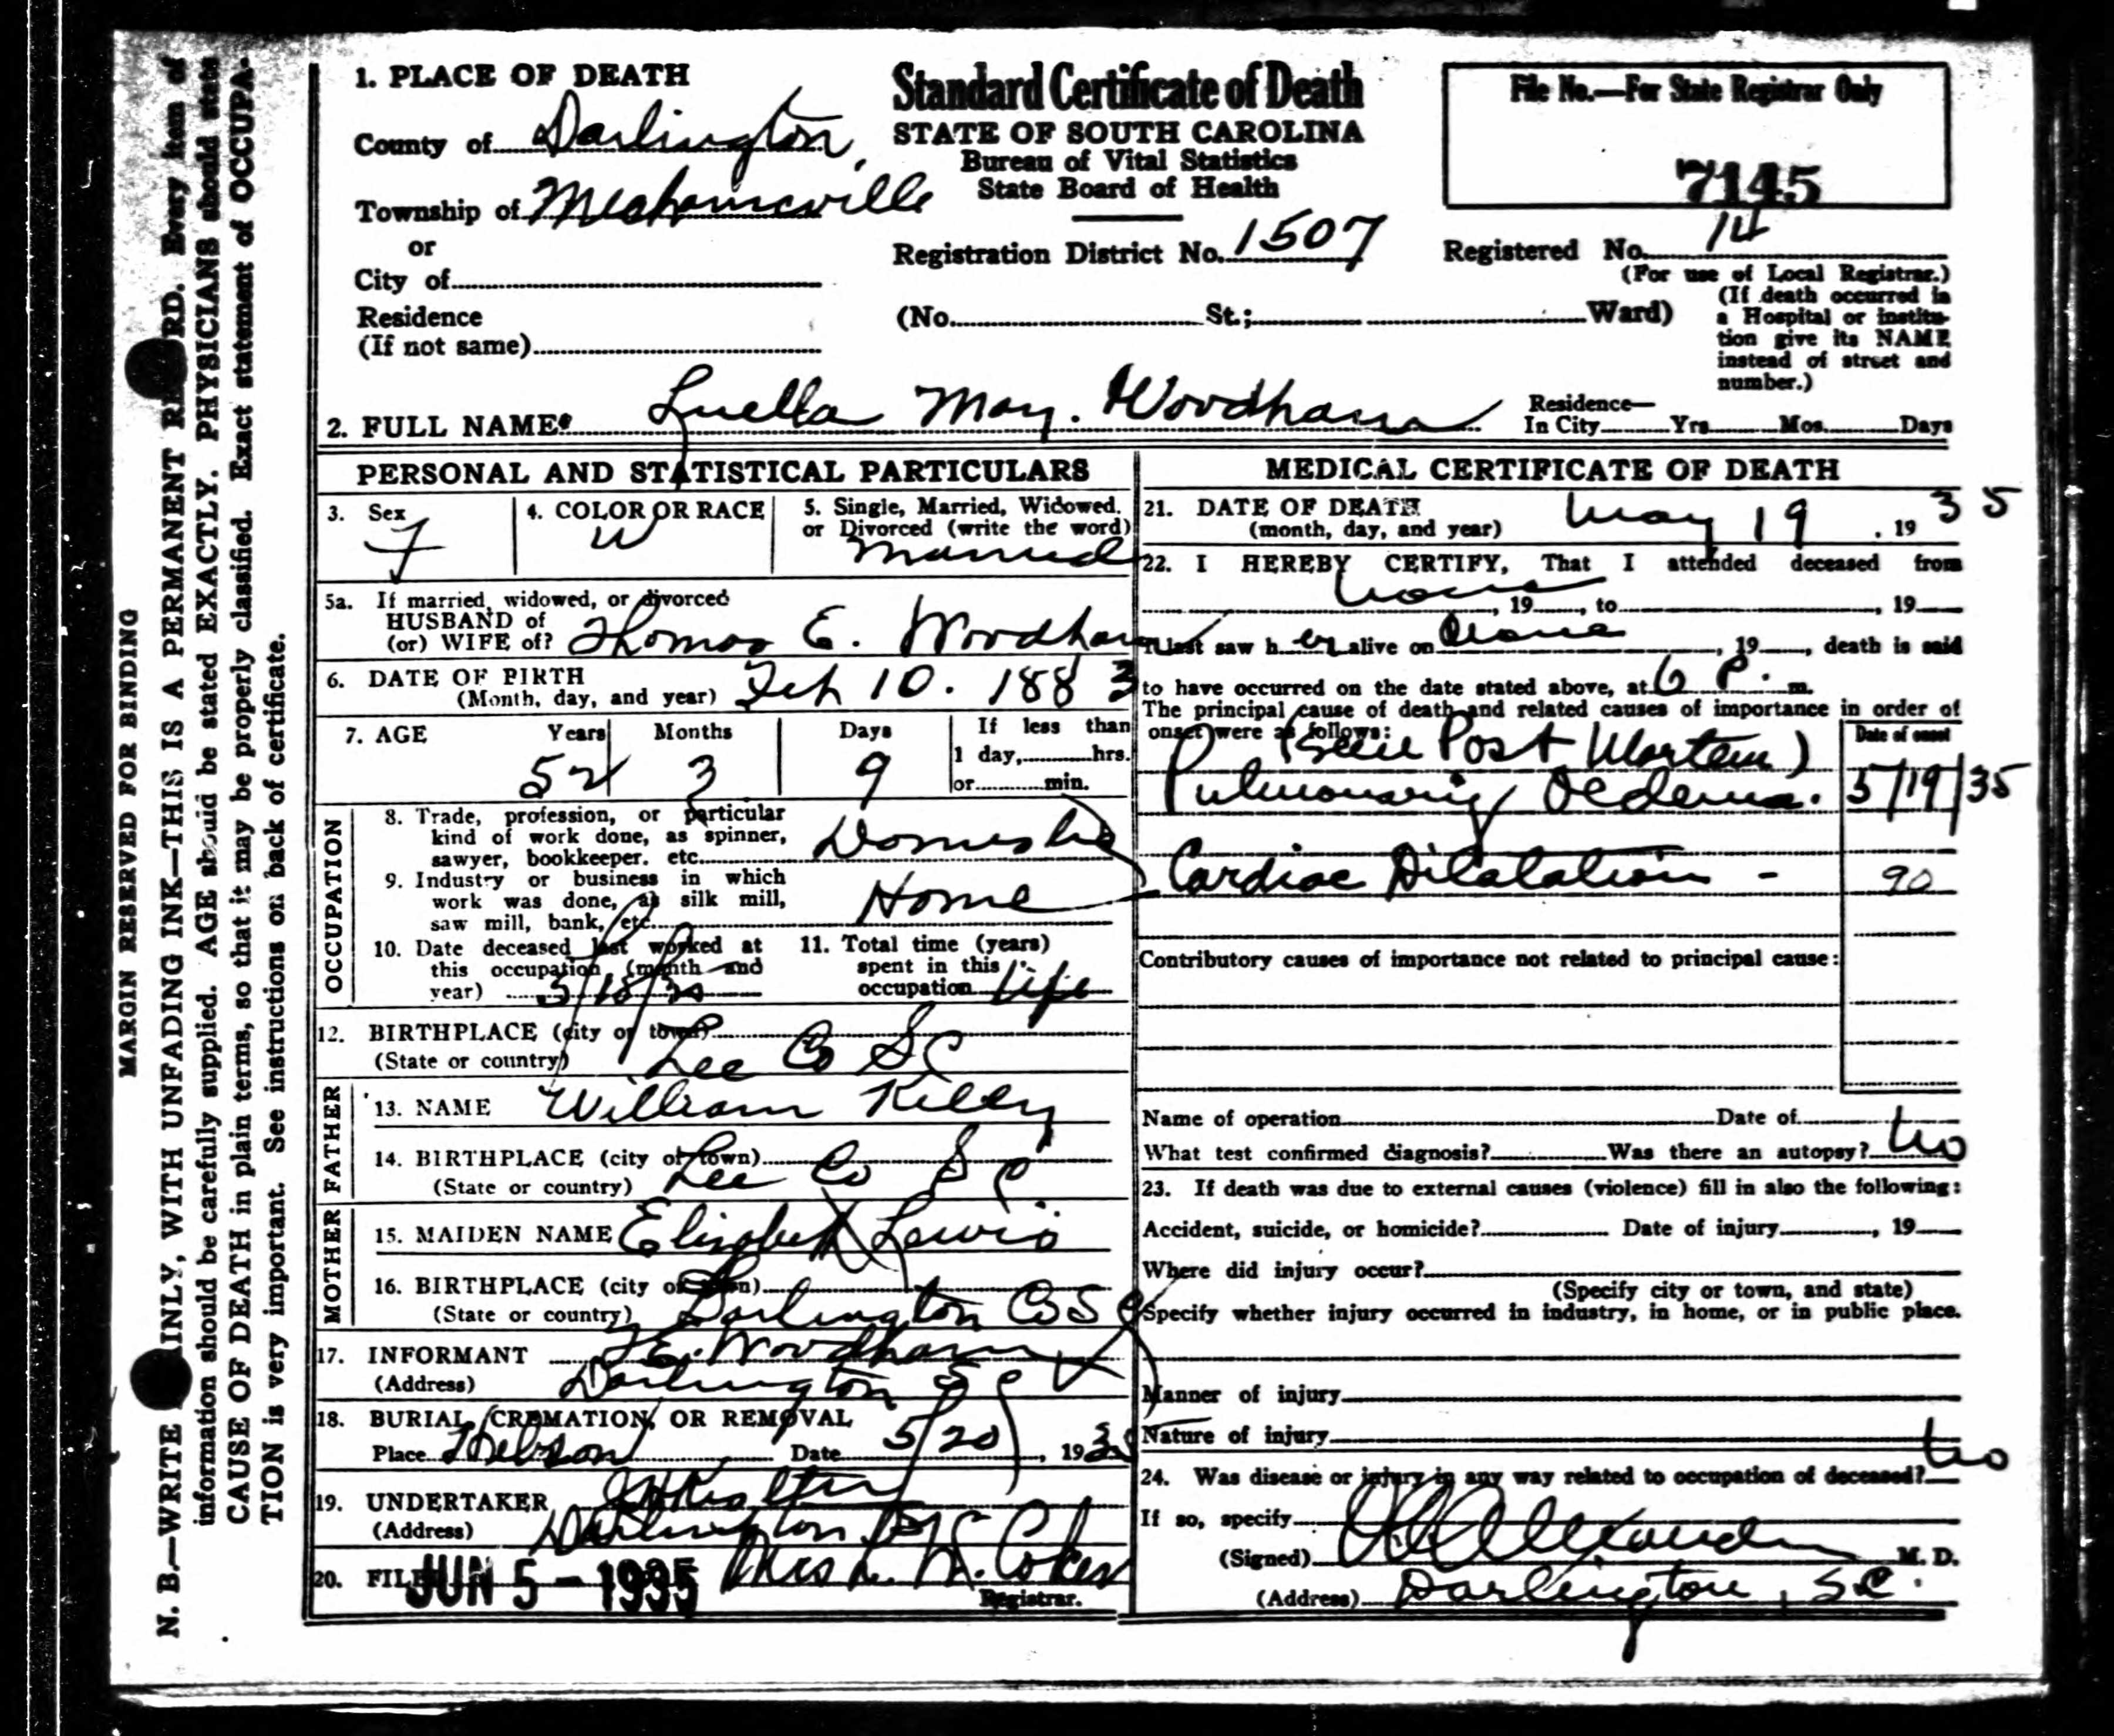 MARGIN RESERVED FOR BINDING
N. B.—WRITE PLAINLY, WITH UNFADING INK—THIS IS A PERMANENT RECORD. Every item of
information should be carefully supplied. AGE should be stated EXACTLY. PHYSICIANS should state
CAUSE OF DEATH in plain terms, so that it may be properly classified. Exact statement of OCCUPA-
TION is very important. See instructions on back of certificate.
Standard Certificate of Death
STATE OF SOUTH CAROLINA
Bureau of Vital Statistics
State Board of Health
File No.—For State Registrar Only
7145
1. PLACE OF DEATH
County of Darlington
Township of Mechanicsville
or
City of
Residence
(If not same)
Registration District No. 1507
Registered No. 14
(For use of Local Registrar.)
(No. St.; Ward)
(If death occurred in
a Hospital or institu-
tion give its NAME
instead of street and
number.)
2. FULL NAME Luella May. Woodham
Residence—
In City Yrs Mos. Days
PERSONAL AND STATISTICAL PARTICULARS
3. Sex
F
4. COLOR OR RACE
W
5. Single, Married, Widowed,
or Divorced (write the word)
Married
5a. If married, widowed, or divorced
HUSBAND of
(or) WIFE of? Thomas E. Woodham
6. DATE OF BIRTH
(Month, day, and year) Feb 10. 1883
7. AGE Years Months Days
52 3 9
If less than
1 day, hrs.
or min.
OCCUPATION
8. Trade, profession, or particular
kind of work done, as spinner,
sawyer, bookkeeper. etc. Domestic
9. Industry or business in which
work was done, as silk mill,
saw mill, bank, etc. Home
10. Date deceased last worked at
this occupation (month and
year)
11. Total time (years)
spent in this
occupation life
12. BIRTHPLACE (city or town)
(State or country) Lee Co SC
FATHER
13. NAME William Kelly
14. BIRTHPLACE (city or town)
(State or country) Lee Co S C
MOTHER
15. MAIDEN NAME Elizabeth Lewis
16. BIRTHPLACE (city or town)
(State or country) Darlington Co S C
17. INFORMANT T. E. Woodham
(Address) Darlington S C
18. BURIAL, CREMATION, OR REMOVAL
Place Date 5/20, 1935
19. UNDERTAKER
(Address) Darlington
20. FILED JUN 5 - 1935
Registrar.
MEDICAL CERTIFICATE OF DEATH
21. DATE OF DEATH
(month, day, and year) May 19, 1935
22. I HEREBY CERTIFY, That I attended deceased from
none, 19, to, 19
I last saw her alive on None, 19, death is said
to have occurred on the date stated above, at 6 P. m.
The principal cause of death and related causes of importance in order of
onset were as follows: Date of onset
(Seen Post Mortem)
Pulmonary Oedema. 5/19/35
Cardiac Dilatation - 90
Contributory causes of importance not related to principal cause:
Name of operation Date of
What test confirmed diagnosis? Was there an autopsy? No
23. If death was due to external causes (violence) fill in also the following:
Accident, suicide, or homicide? Date of injury, 19
Where did injury occur?
(Specify city or town, and state)
Specify whether injury occurred in industry, in home, or in public place.
Manner of injury
Nature of injury
24. Was disease or injury in any way related to occupation of deceased? No
If so, specify
(Signed) Alexander M. D.
(Address) Darlington, S.C.